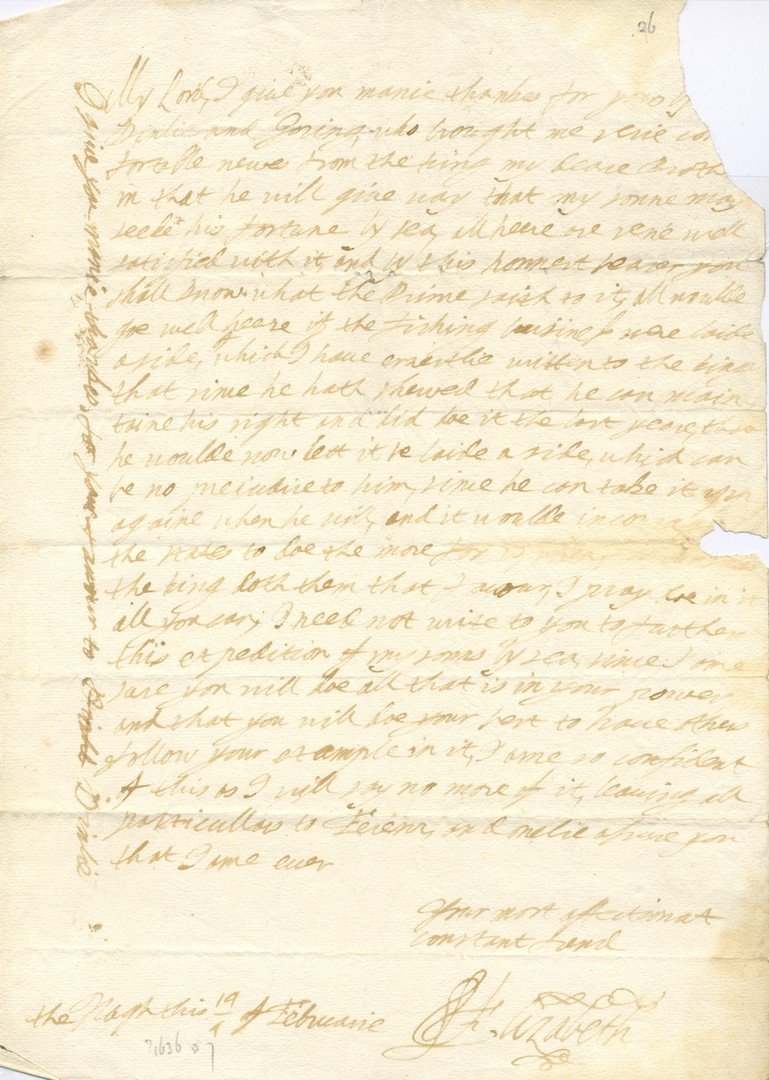 26
My Lord, I give you manie thankes for yours by
and Goring, who brought me verie com
fortable newes from the king my deare Broth
in that he will give way that my sonne may
seeke his fortune by sea, all heere are verie well
satisfied with it, and by this honnest bearer you
shall know what the Prince saith to it, all woulde
goe well heere if the fishing business were laide
aside, which I have earnestlie written to the king
that since he hath shewed that he can main
taine his right and did doe it the last yeare, that
he woulde now lett it be laide a side, which can
be no prejudice to him, since he can take it upp
againe when he will, and it woulde incourage
the states to doe the more for
the king doth them that favour, I pray doe in it
all you can, I need not write to you to further
this expedition of my sonns by sea, since I ame
sure you will doe all that is in your power
and that you will doe your best to have others
follow your example in it, I ame so confident
of this as I will say no more of it, leaving all
particullars to and onelie assure you
that I ame ever
Your most affectionat
constant frend
Elizabeth
the Hagh this 19 of Februarie
?1636 o 7
I give you manie thankes for your favour to